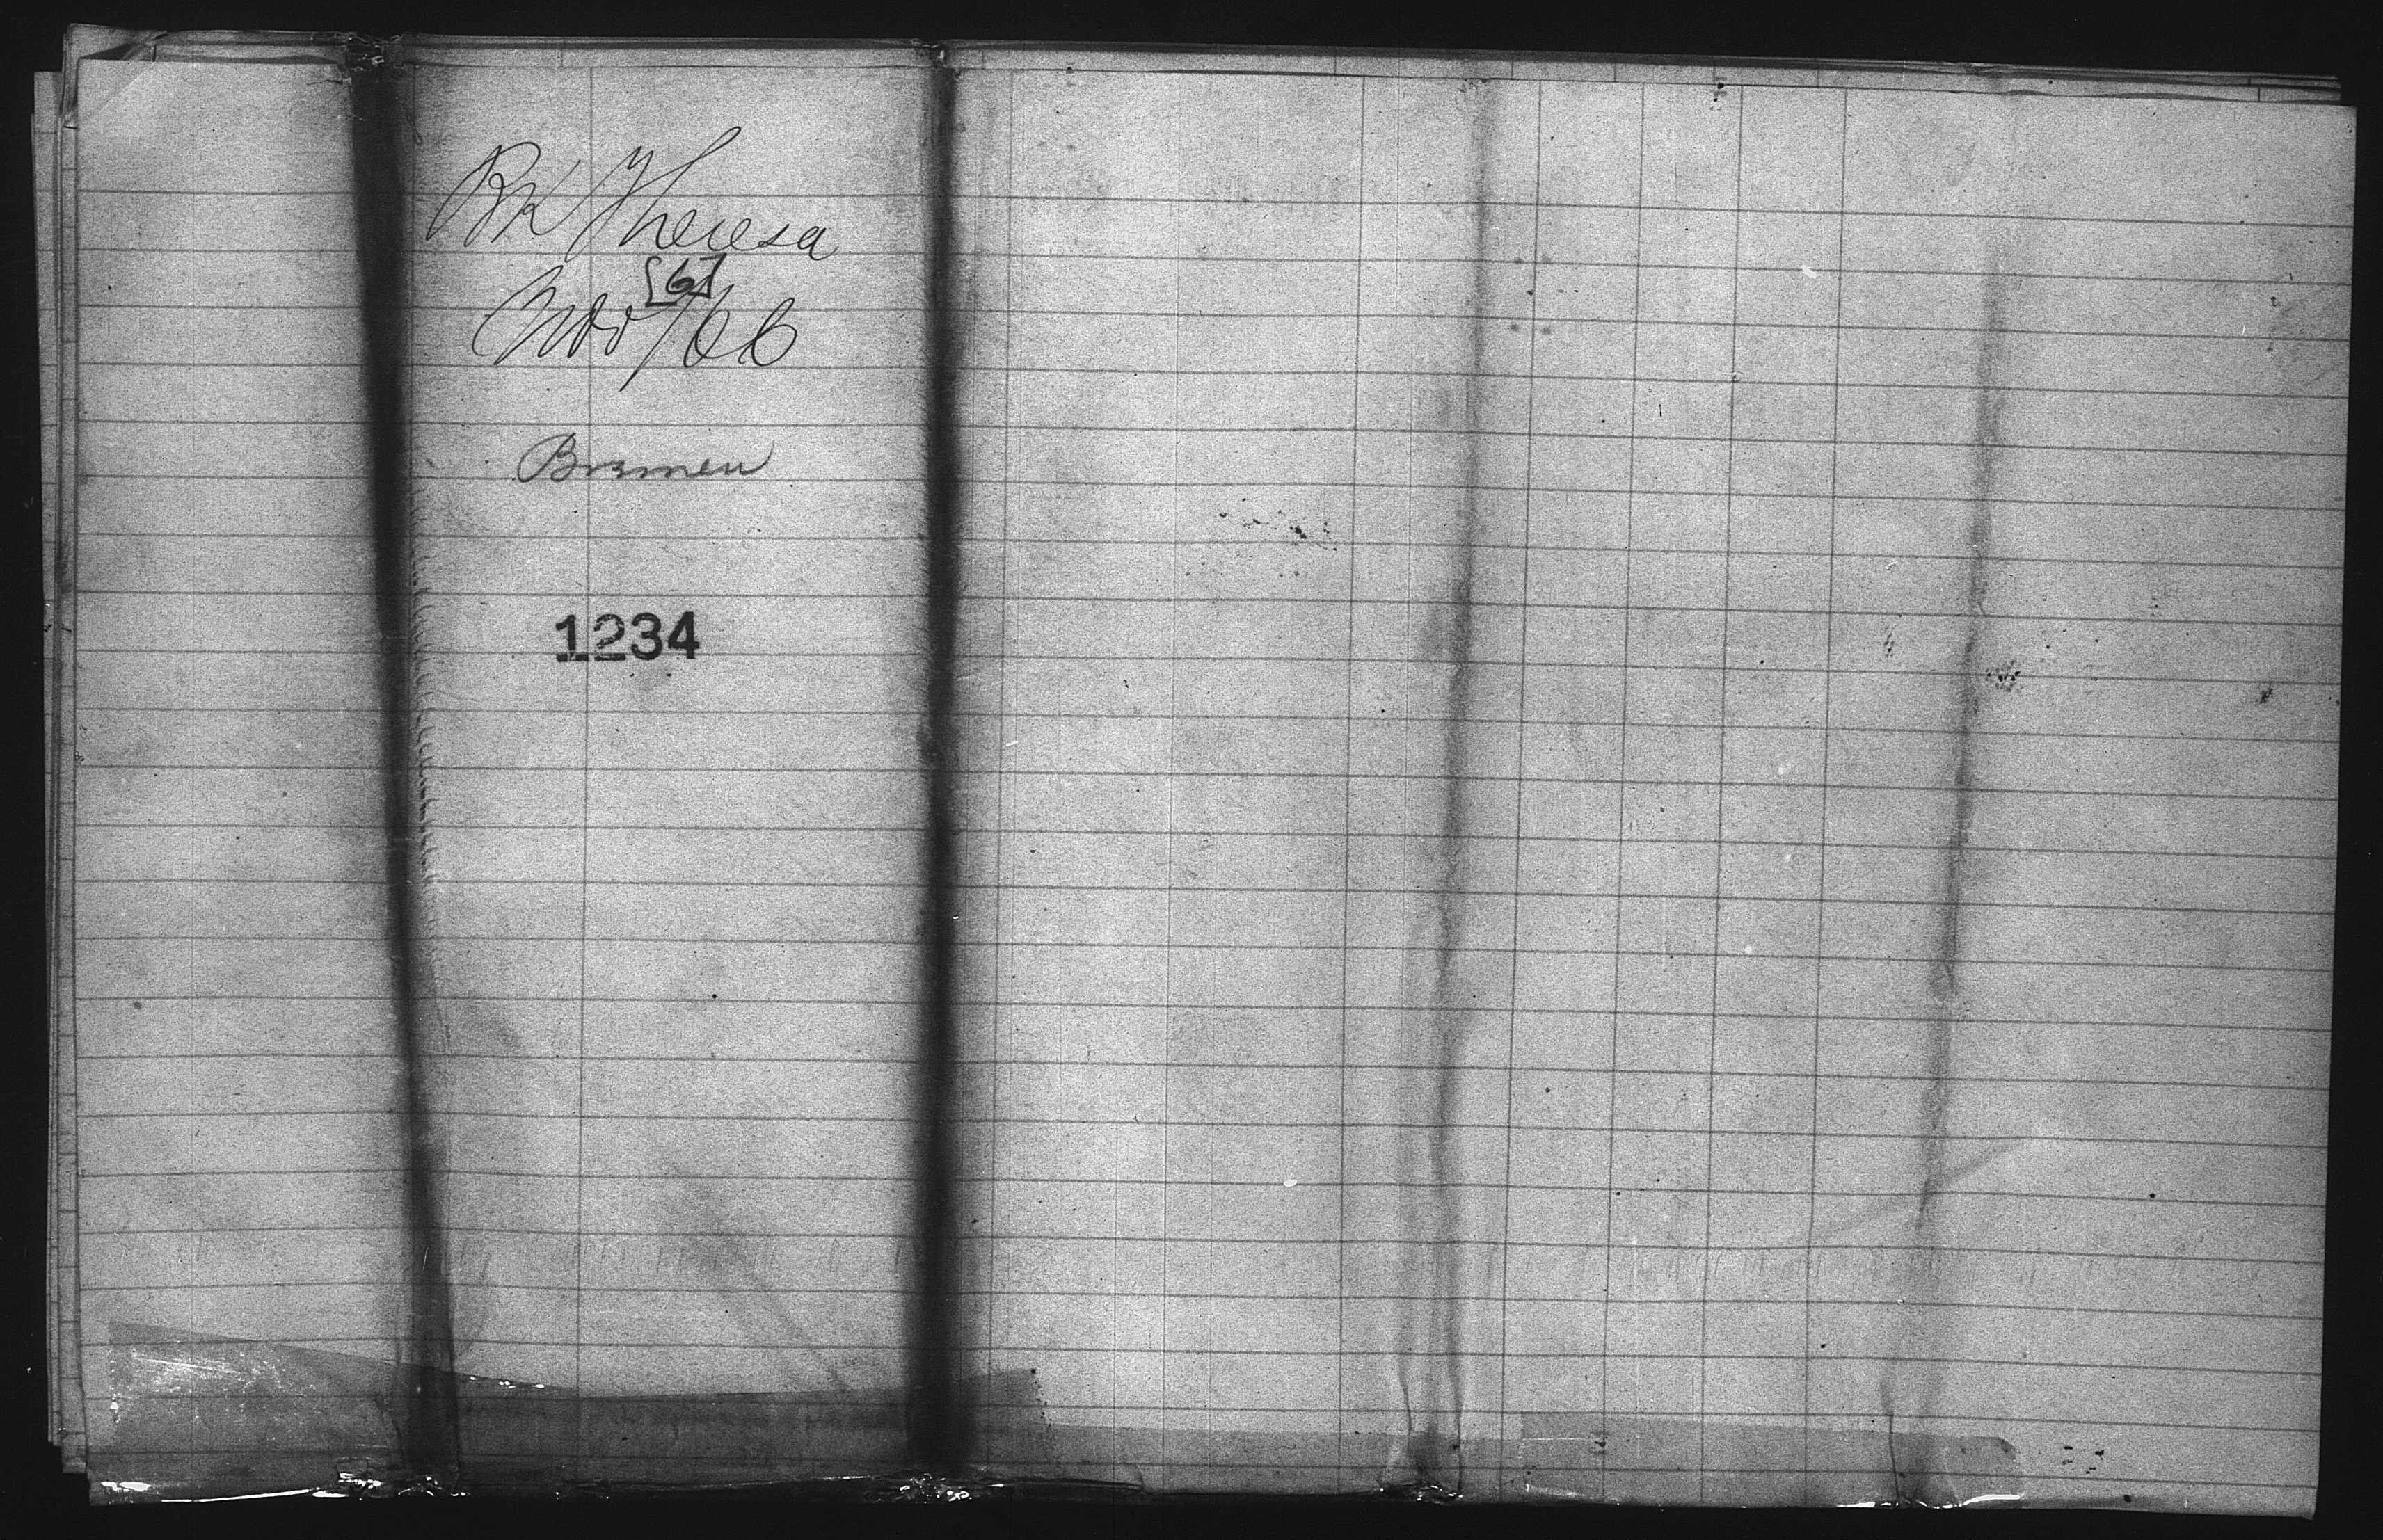 Bk Theresa
[6]
Nov /66
Bremen
1234